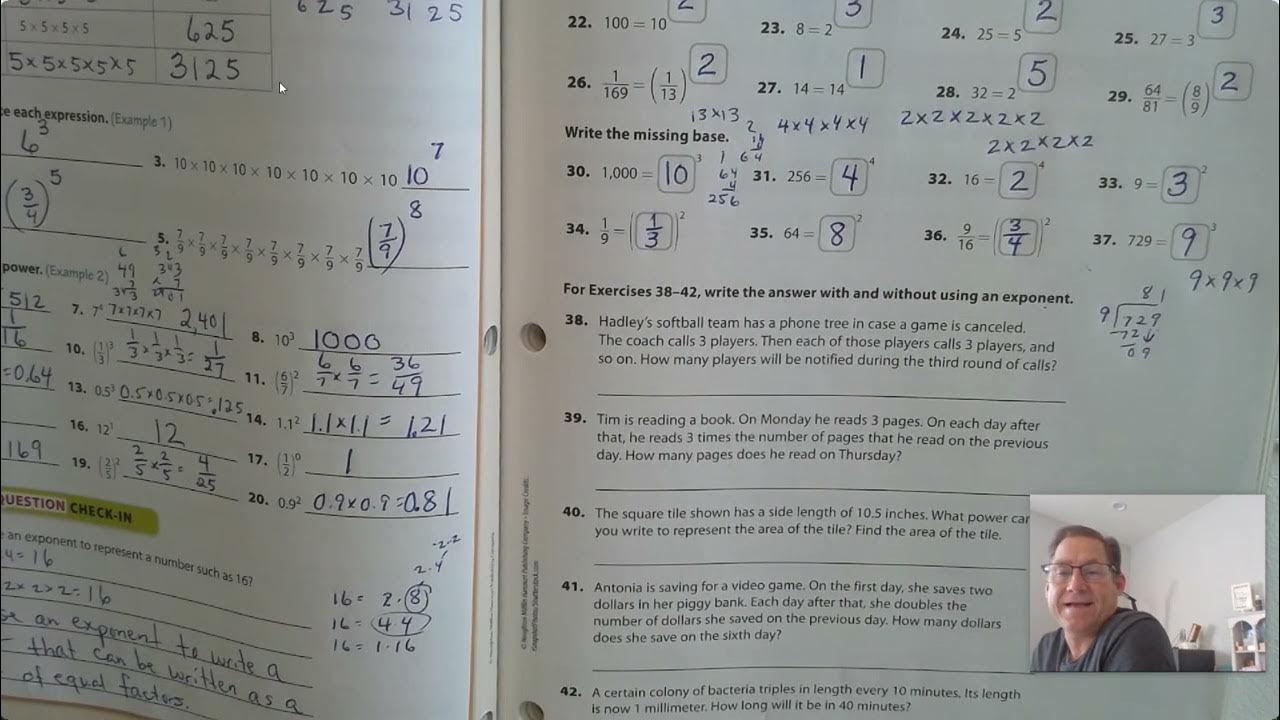 625 3125
5 × 5 × 5 × 5 625
5×5×5×5×5 3125
each expression. (Example 1)
6³
3. 10 × 10 × 10 × 10 × 10 × 10 × 10 10⁷
8
(3/4)⁵
5. 7/9 × 7/9 × 7/9 × 7/9 × 7/9 × 7/9 × 7/9 × 7/9 (7/9)
power. (Example 2)
49
343
343
7
512
7. 7×7×7×7 2,401
8. 10³ 1000
1
16
10. (1/3)³ 1/3 × 1/3 × 1/3 = 1/27
11. (6/7)² 6/7 × 6/7 = 36/49
=0.64
13. 0.5³ 0.5×0.5×0.5=.125
14. 1.1² 1.1×1.1 = 1.21
16. 12¹ 12
17. (1/2)⁰ 1
169
19. (2/5)² 2/5 × 2/5 = 4/25
20. 0.9² 0.9×0.9=0.81
QUESTION CHECK-IN
an exponent to represent a number such as 16?
4=16
2×2×2=16
an exponent to write a
that can be written as a
of equal factors.
2·4
16 = 2·8
16 = 4·4
16 = 1·16
22. 100 = 10 2
23. 8 = 2 3
24. 25 = 5 2
25. 27 = 3 3
26. 1/169 = (1/13) 2
27. 14 = 14 1
28. 32 = 2 5
29. 64/81 = (8/9) 2
13×13
4×4×4×4
2×2×2×2×2
Write the missing base.
2×2×2×2
64
4
256
30. 1,000 = 10³
31. 256 = 4⁴
32. 16 = 2⁴
33. 9 = 3²
34. 1/9 = (1/3)²
35. 64 = 8²
36. 9/16 = (3/4)²
37. 729 = 9³
9×9×9
81
9 729
72
09
For Exercises 38–42, write the answer with and without using an exponent.
38. Hadley's softball team has a phone tree in case a game is canceled.
The coach calls 3 players. Then each of those players calls 3 players, and
so on. How many players will be notified during the third round of calls?
39. Tim is reading a book. On Monday he reads 3 pages. On each day after
that, he reads 3 times the number of pages that he read on the previous
day. How many pages does he read on Thursday?
40. The square tile shown has a side length of 10.5 inches. What power can
you write to represent the area of the tile? Find the area of the tile.
41. Antonia is saving for a video game. On the first day, she saves two
dollars in her piggy bank. Each day after that, she doubles the
number of dollars she saved on the previous day. How many dollars
does she save on the sixth day?
42. A certain colony of bacteria triples in length every 10 minutes. Its length
is now 1 millimeter. How long will it be in 40 minutes?